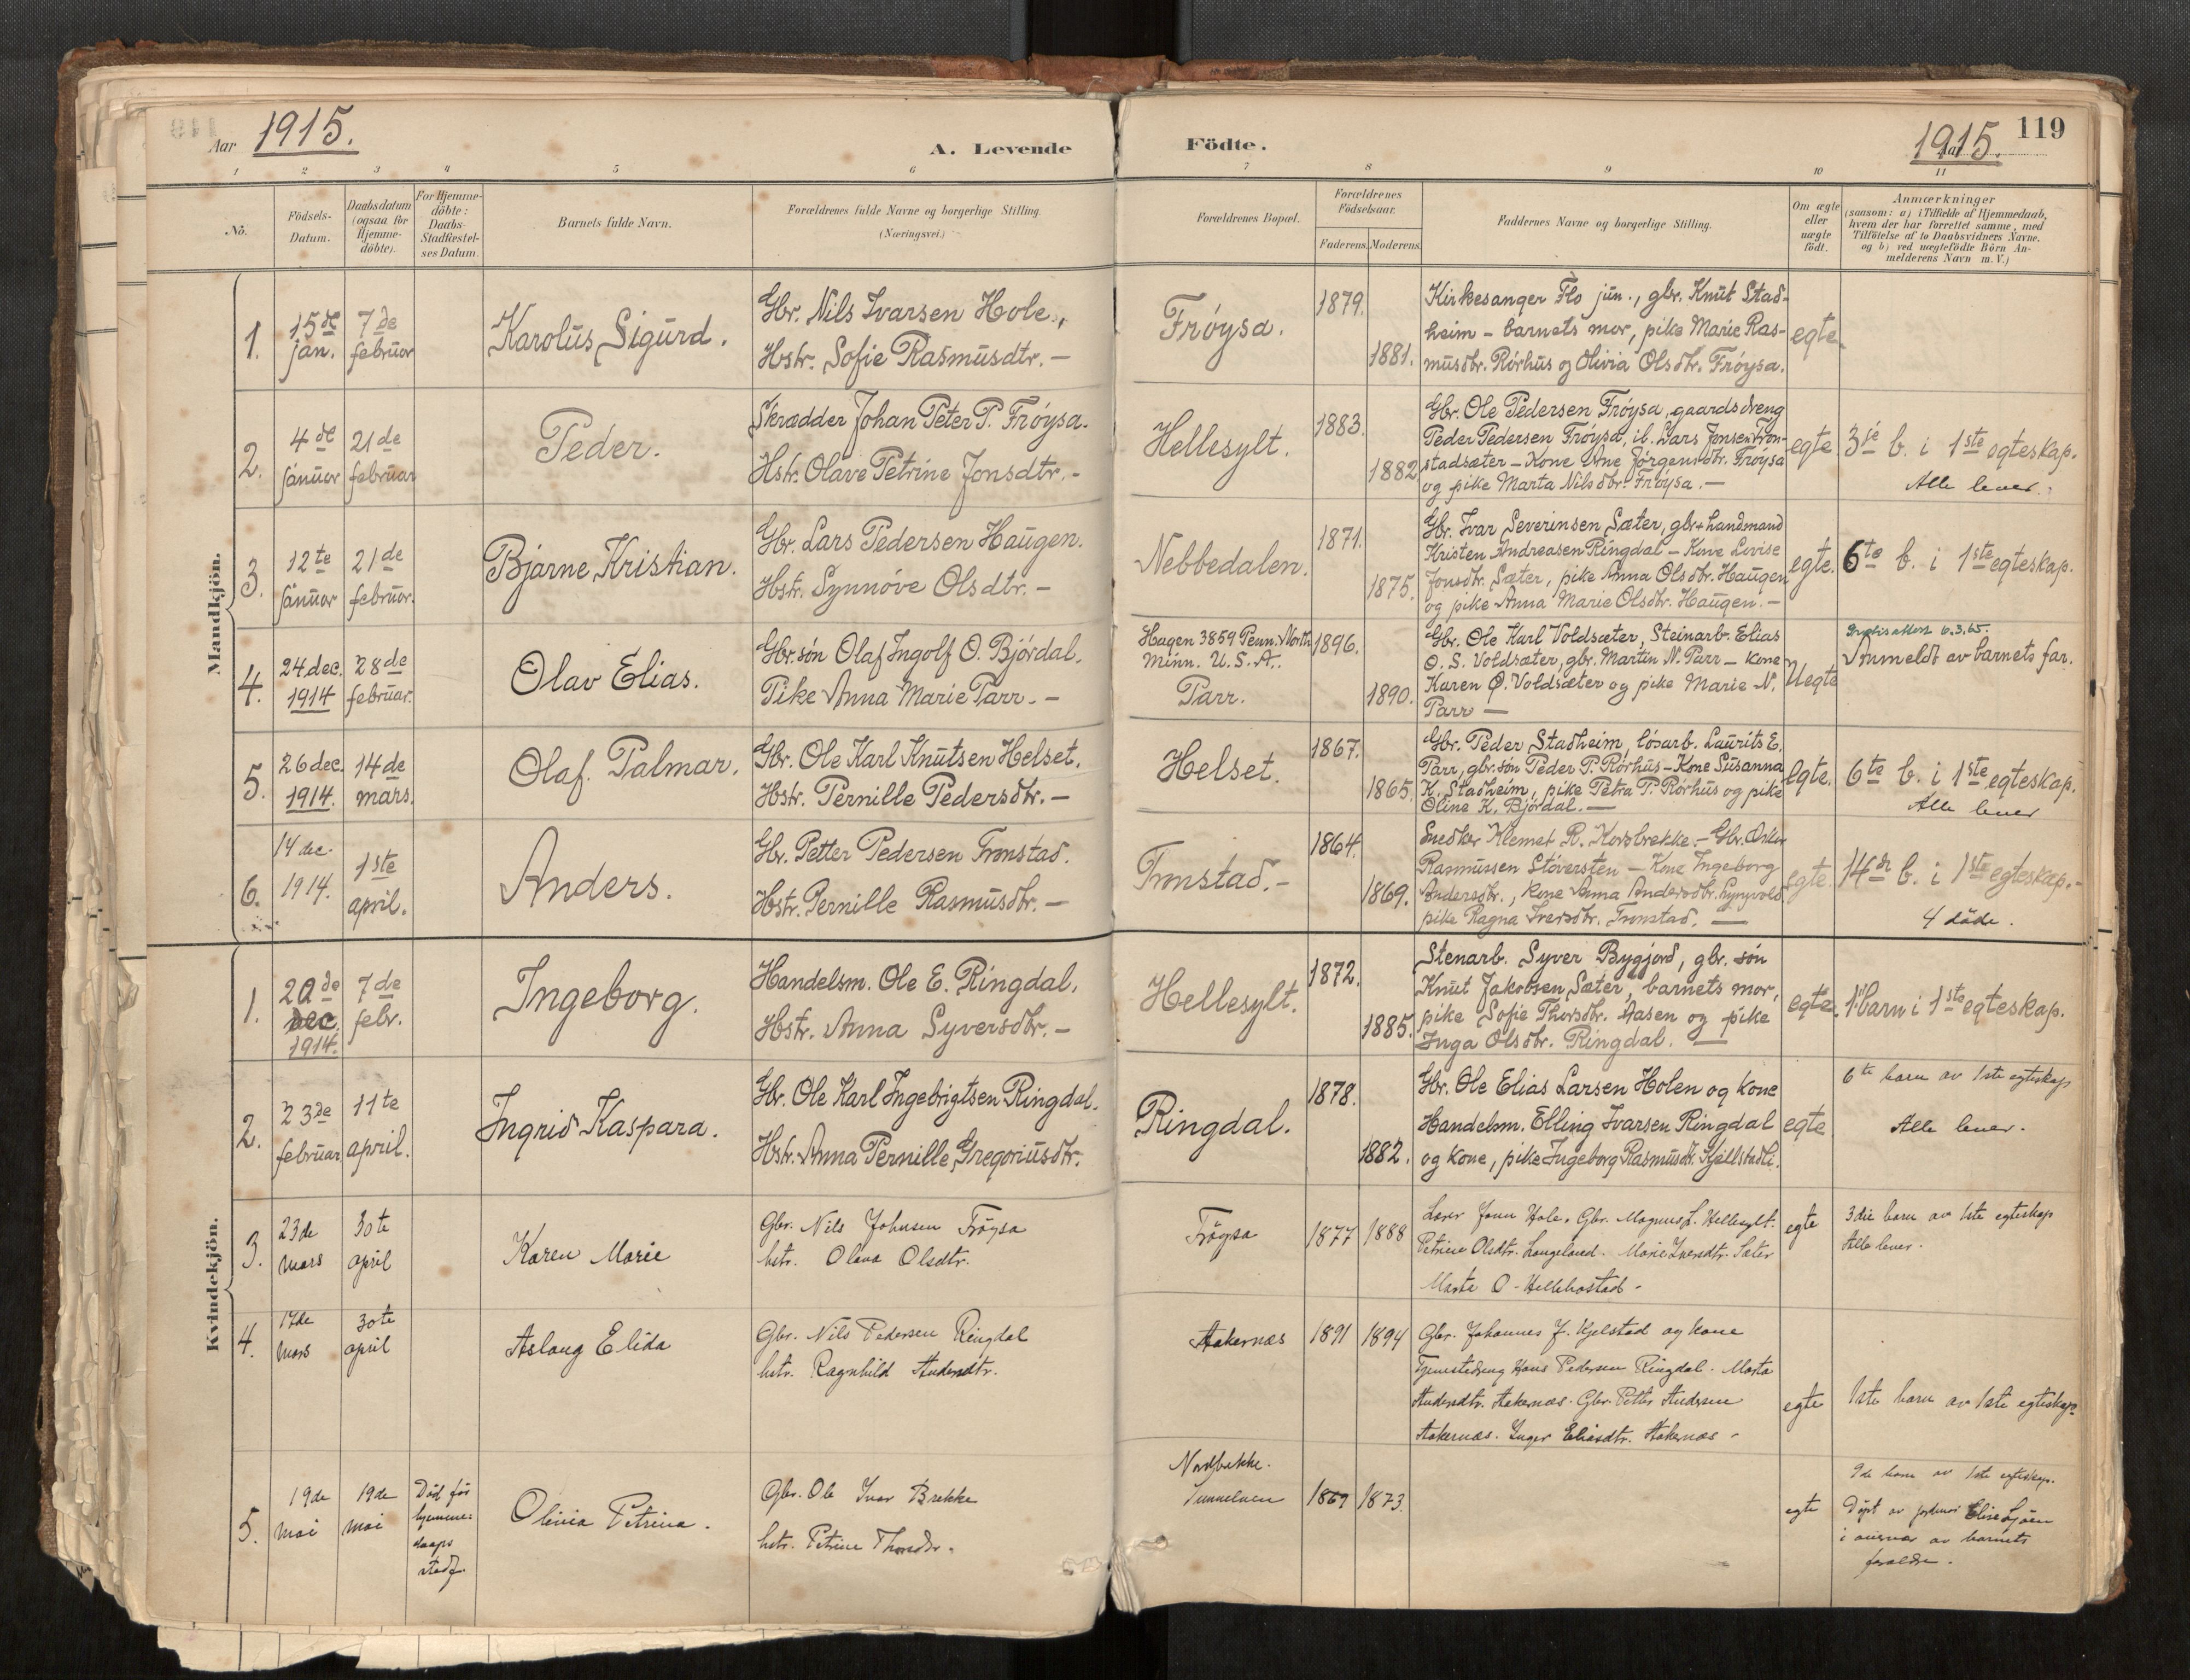 Aar 1915.
A. Levende
Födte.
1915.
119
1 2 3 4 5 6 7 8 9 10 11
No.
Födsels-
Datum.
Daabsdatum
(ogsaa for
Hjemme-
döbte).
For Hjemme-
döbte:
Daabs-
Stadfæstel-
ses Datum.
Barnets fulde Navn.
Forældrenes fulde Navne og borgerlige Stilling
(Næringsvei.)
Forældrenes Bopæl.
Forældrenes
Födselsaar.
Faderens. Moderens.
Faddernes Navne og borgerlige Stilling.
Om ægte
eller
uægte
födt.
Anmærkninger
(saasom: a) i Tilfælde af Hjemmedaab,
hvem der har forrettet samme, med
Tilföielse af to Daabsvidners Navne,
og b) ved uægtefödte Börn An-
melderens Navn m. V.)
Mandkjön.
1.
15de
jan.
7de
februar
Karolus Sigurd.
Gbr. Nils Ivarsen Hole,
Hstr. Sofie Rasmusdtr. —
Frøysa.
1879.
1881.
Kirkesanger Flo jun., gbr. Knut Stad-
heim – barnets mor, pike Marie Ras-
musdtr. Rørhus og Olivia Olsdtr. Frøysa.
egte.
2.
4de
januar
21de
februar
Peder.
Skrædder Johan Peter P. Frøysa.
Hstr. Olave Petrine Jonsdtr. –
Hellesylt.
1883.
1882
Gbr. Ole Pedersen Frøysa, gaardsdreng
Peder Pedersen Frøysa, ib. Lars Jonsen Tron-
stadsæter – Kone Ane Jørgensdtr. Frøysa
og pike Marta Nilsdtr. Frøysa. —
egte
3je b. i 1ste egteskap.
Alle lever.
3.
12te
januar
21de
februar.
Bjarne Kristian.
Gbr. Lars Pedersen Haugen.
Hstr. Synnøve Olsdtr. –
Nebbedalen.
1871.
1875.
Gbr. Ivar Severinsen Sæter, gbr + handmand
Kristen Andreasen Ringdal – Kone Lovise
Jonsdtr. Sæter, pike Anna Olsdtr. Haugen
og pike Anna Marie Olsdtr. Haugen. –
egte.
6te b. i 1ste egteskap.
4.
24 dec.
1914
28de
februar.
Olav Elias.
Gbr.søn Olaf Ingolf O. Bjørdal.
Pike Anna Marie Tarr. –
Hagen 3859 Penn. North
Minn. U.S.A.
Parr.
1896.
1890.
Gbr. Ole Karl Voldsæter, Steinarb. Elias
O. S. Voldsæter, gbr. Martin N. Parr – kone
Karen O. Voldsæter og pike Marie N.
Parr —
Uegte
6.3.65.
Inmeldt av barnets far.
5.
26 dec.
1914.
14de
mars.
Olaf Palmar.
Gbr. Ole Karl Knutsen Helset.
Hstr. Pernille Pedersdtr. –
Helset.
1867.
1865.
Gbr. Peder Stadheim, løsarb. Laurits E.
Parr, gbr.søn Peder P. Rørhus – Kone Susanna
K. Stadheim, pike Petra P. Rørhus og pike
Oline K. Bjørdal. —
Egte.
6te b. i 1ste egteskap.
Alle lever
6.
14 dec.
1914.
1ste
april.
Anders.
Gbr. Petter Pedersen Tronstad.
Hstr. Pernille Rasmusdtr. –
Tronstad. –
1864.
1869.
Snedker Klemet R. Korsbrekke – Gbr. Oskar
Rasmussen Støversten – Kone Ingeborg
Andersdtr., kone Anna Andersdtr.
pike Ragna Iversdtr. Tronstad. —
egte.
14de b. i 1ste egteskap. –
4 døde.
Kvindekjön.
1.
20de
dec.
1914.
7de
febr.
Ingeborg.
Handelsm. Ole E. Ringdal,
Hstr. Anna Syversdtr. –
Hellesylt.
1872.
1885.
Stenarb. Syver Bygjord, gbr. søn
Knut Jakobsen Sæter, barnets mor,
pike Sofie Thorsdtr. Aasen og pike
Inga Olsdtr. Ringdal. —
egte.
1ste barn i 1ste egteskap.
2.
23de
februar
11te
april.
Ingrid Kaspara.
Gbr. Ole Karl Ingebrigtsen Ringdal.
Hstr. Anna Pernille Gregoriusdtr.
Ringdal.
1878.
1882.
Gbr. Ole Elias Larsen Holen og kone
Handelsm. Elling Ivarsen Ringdal
og kone, pike Ingeborg Rasmusdt. Kjellstadli.
egte
6te barn av 1ste egteskap
Alle lever.
3.
23de
mars
30te
april
Karen Marie
Gbr. Nils Johnsen Frøysa
hstr. Olava Olsdtr.
Frøysa
1877 1888
Lærer Jonn Hole. Gbr. Magnus L. Hellesylt.
Petrine Olsdtr. Langeland. Marie Iversdtr. Sæter
Marte O. Hellebostad –
egte
3die barn av 1ste egteskap
Alle lever.
4.
17de
mars
30te
april
Aslaug Elida
Gbr. Nils Pedersen Ringdal
hstr. Ragnhild Andersdtr.
Aakernæs
1891 1894
Gbr. Johannes J. Kjelstad og kone
Tjenestedreng Hans Pedersen Ringdal. Marta
Andersdtr. Aakernæs. Gbr. Petter Andersen
Aakernæs. Inger Eliasdtr. Aakernæs –
egte
1ste barn av 1ste egteskap
5.
19de
mai
19de
mai
Död før
hjemme-
daaps
stadf.
Olivia Petrina.
Gbr. Ole Ivar Brekke
hstr. Petrine Thorsdtr.
Nordbrekke.
Sunnelven
1869 1873.
egte
9de barn av 1ste egteskap.
Døpt av jordmor Elise Sjøen
i nærvær av barnets
forældre.